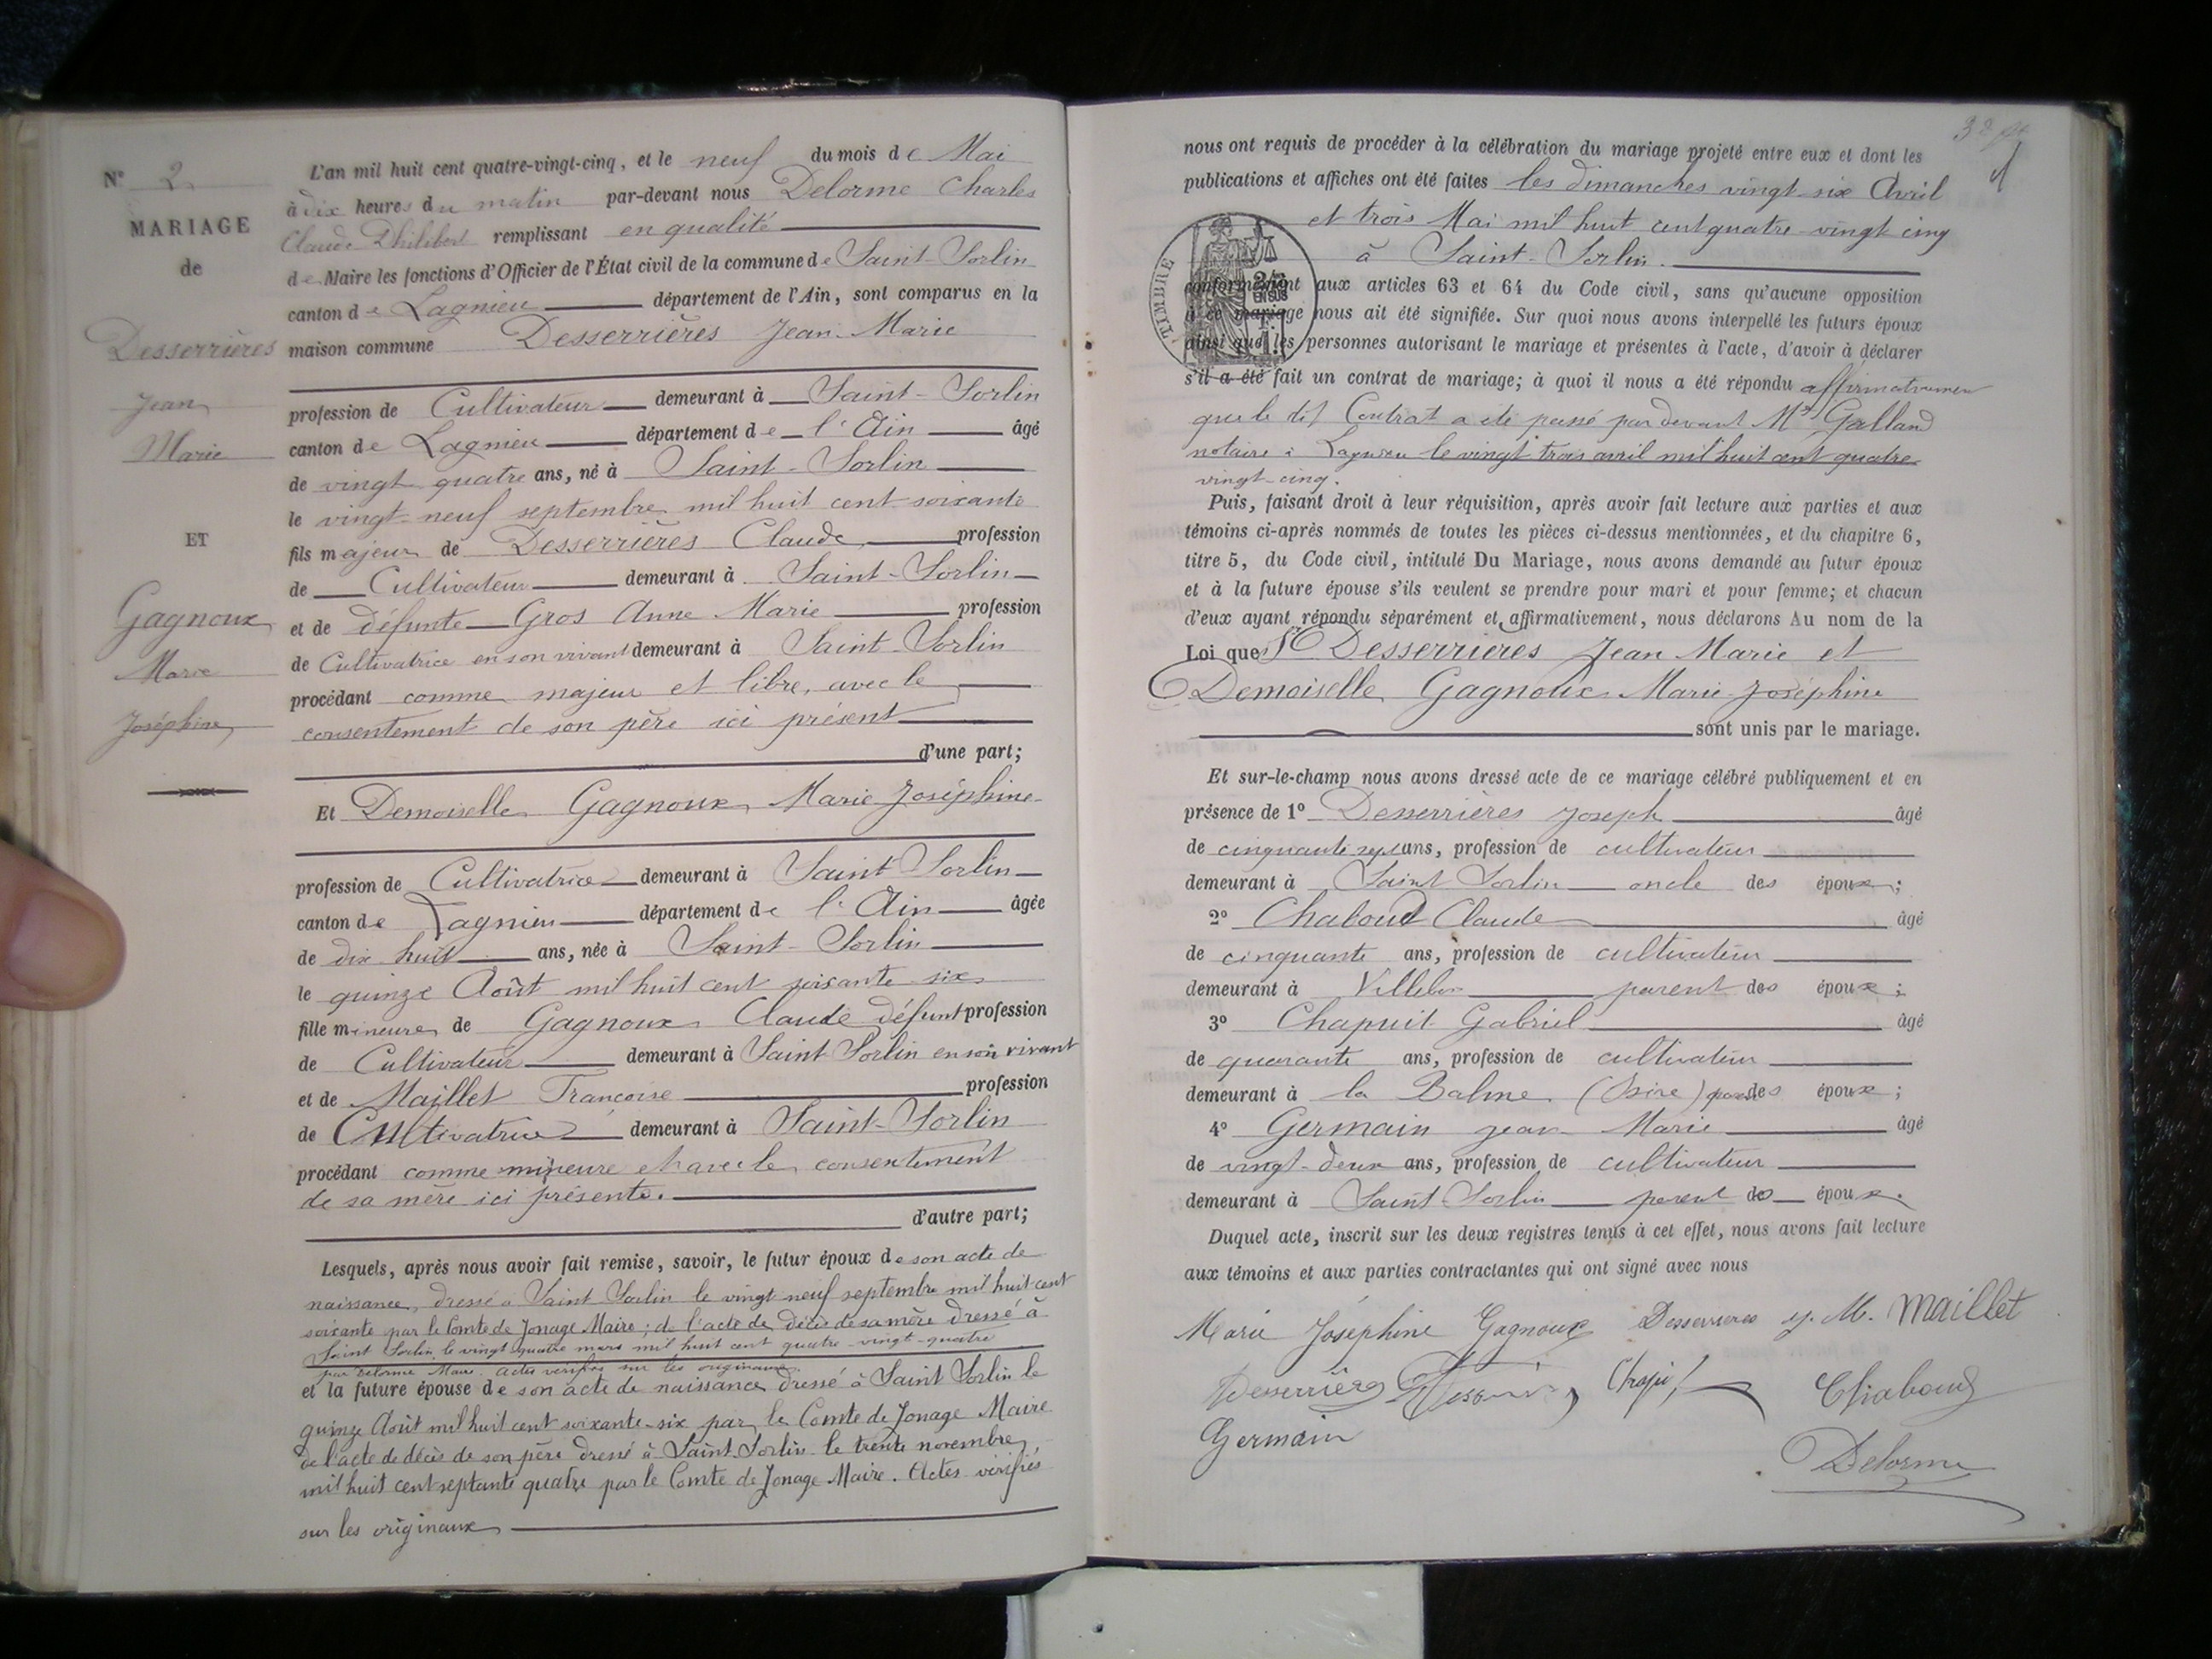 N° 2
MARIAGE
de
Desserrières
Jean
Marie
ET
Gagnoux
Marie
Joséphine
L'an mil huit cent quatre-vingt-cinq, et le neuf du mois de Mai
à dix heures du matin par-devant nous Delorme Charles
Claude Philibert remplissant en qualité
de Maire les fonctions d'Officier de l'État civil de la commune de Saint-Sorlin
canton de Lagnieu département de l'Ain, sont comparus en la
maison commune Desserrières Jean-Marie
profession de Cultivateur demeurant à Saint-Sorlin
canton de Lagnieu département de l'Ain âgé
de vingt quatre ans, né à Saint-Sorlin
le vingt-neuf septembre mil huit cent soixante
fils majeur de Desserrières Claude profession
de Cultivateur demeurant à Saint-Sorlin
et de défunte Gros Anne Marie profession
de Cultivatrice en son vivant demeurant à Saint-Sorlin
procédant comme majeur et libre, avec le
consentement de son père ici présent
d'une part;
Et Demoiselle Gagnoux Marie-Joséphine
profession de Cultivatrice demeurant à Saint Sorlin
canton de Lagnieu département de l'Ain âgée
de dix huit ans, née à Saint-Sorlin
le quinze Août mil huit cent soixante-six
fille mineure de Gagnoux Claude défunt profession
de Cultivateur demeurant à Saint-Sorlin en son vivant
et de Maillet Françoise profession
de Cultivatrice demeurant à Saint-Sorlin
procédant comme mineure et avec le consentement
de sa mère ici présente.
d'autre part;
Lesquels, après nous avoir fait remise, savoir, le futur époux de son acte de
naissance, dressé à Saint Sorlin le vingt neuf septembre mil huit cent
soixante par le Comte de Jonage Maire; de l'acte de décès de sa mère dressé à
Saint Sorlin le vingt quatre mars mil huit cent quatre-vingt-quatre
par Delorme Maire. actes vérifiés sur les originaux.
et la future épouse de son acte de naissance dressé à Saint Sorlin le
quinze Août mil huit cent soixante-six par le Comte de Jonage Maire
de l'acte de décès de son père dressé à Saint-Sorlin le trente novembre
mil huit cent septante quatre par le Comte de Jonage Maire. Actes vérifiés
sur les originaux
nous ont requis de procéder à la célébration du mariage projeté entre eux et dont les
publications et affiches ont été faites les dimanches vingt-six Avril
et trois Mai mil huit cent quatre-vingt cinq
à Saint-Sorlin.
TIMBRE
conformément aux articles 63 et 64 du Code civil, sans qu'aucune opposition
à ce mariage nous ait été signifiée. Sur quoi nous avons interpellé les futurs époux
ainsi que les personnes autorisant le mariage et présentes à l'acte, d'avoir à déclarer
s'il a été fait un contrat de mariage; à quoi il nous a été répondu affirmativement
que le dit Contrat a été passé par devant Me Galland
notaire à Lagnieu le vingt trois avril mil huit cent quatre
vingt-cinq.
Puis, faisant droit à leur réquisition, après avoir fait lecture aux parties et aux
témoins ci-après nommés de toutes les pièces ci-dessus mentionnées, et du chapitre 6,
titre 5, du Code civil, intitulé Du Mariage, nous avons demandé au futur époux
et à la future épouse s'ils veulent se prendre pour mari et pour femme; et chacun
d'eux ayant répondu séparément et affirmativement, nous déclarons Au nom de la
Loi que Sr Desserrières Jean Marie et
Demoiselle Gagnoux Marie-Joséphine
sont unis par le mariage.
Et sur-le-champ nous avons dressé acte de ce mariage célébré publiquement et en
présence de 1° Desserrières Joseph âgé
de cinquante sept ans, profession de cultivateur
demeurant à Saint Sorlin oncle des époux;
2° Chaboud Claude âgé
de cinquante ans, profession de cultivateur
demeurant à Villebois parent des époux;
3° Chapuit Gabriel âgé
de quarante ans, profession de cultivateur
demeurant à la Balme (Isère) parent des époux;
4° Germain Jean-Marie âgé
de vingt-deux ans, profession de cultivateur
demeurant à Saint-Sorlin parent des époux.
Duquel acte, inscrit sur les deux registres tenus à cet effet, nous avons fait lecture
aux témoins et aux parties contractantes qui ont signé avec nous
Marie Joséphine Gagnoux Desserrieres J. M. Maillet
Desserrières Chaboud
Germain
Delorme